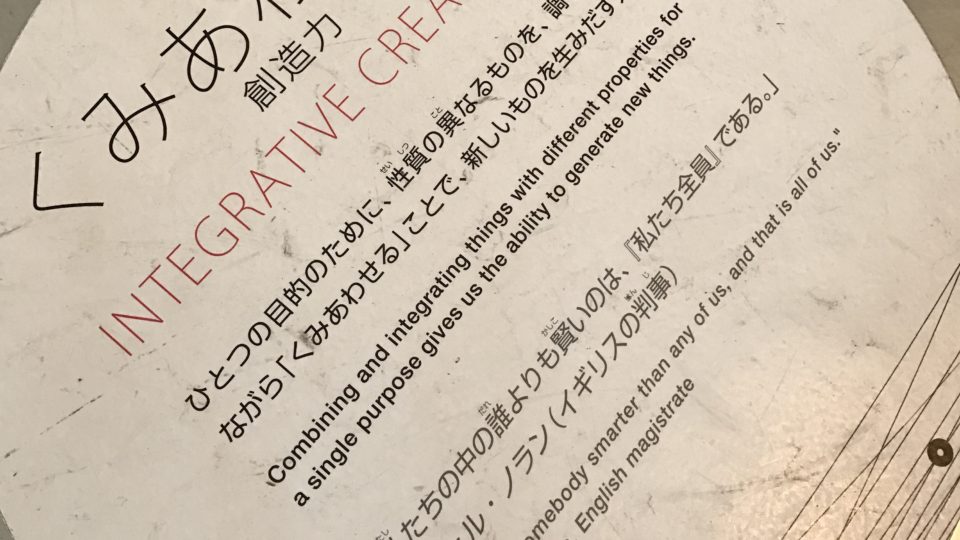 くみあ
創造力
INTEGRATIVE CREA
ひとつの目的のために、性質の異なるものを、調
ながら「くみあわせる」ことで、新しいものを生みだす
Combining and integrating things with different properties for
a single purpose gives us the ability to generate new things.
たちの中の誰よりも賢いのは、『私たち全員』である。」
ル・ノラン(イギリスの判事)
omebody smarter than any of us, and that is all of us."
English magistrate